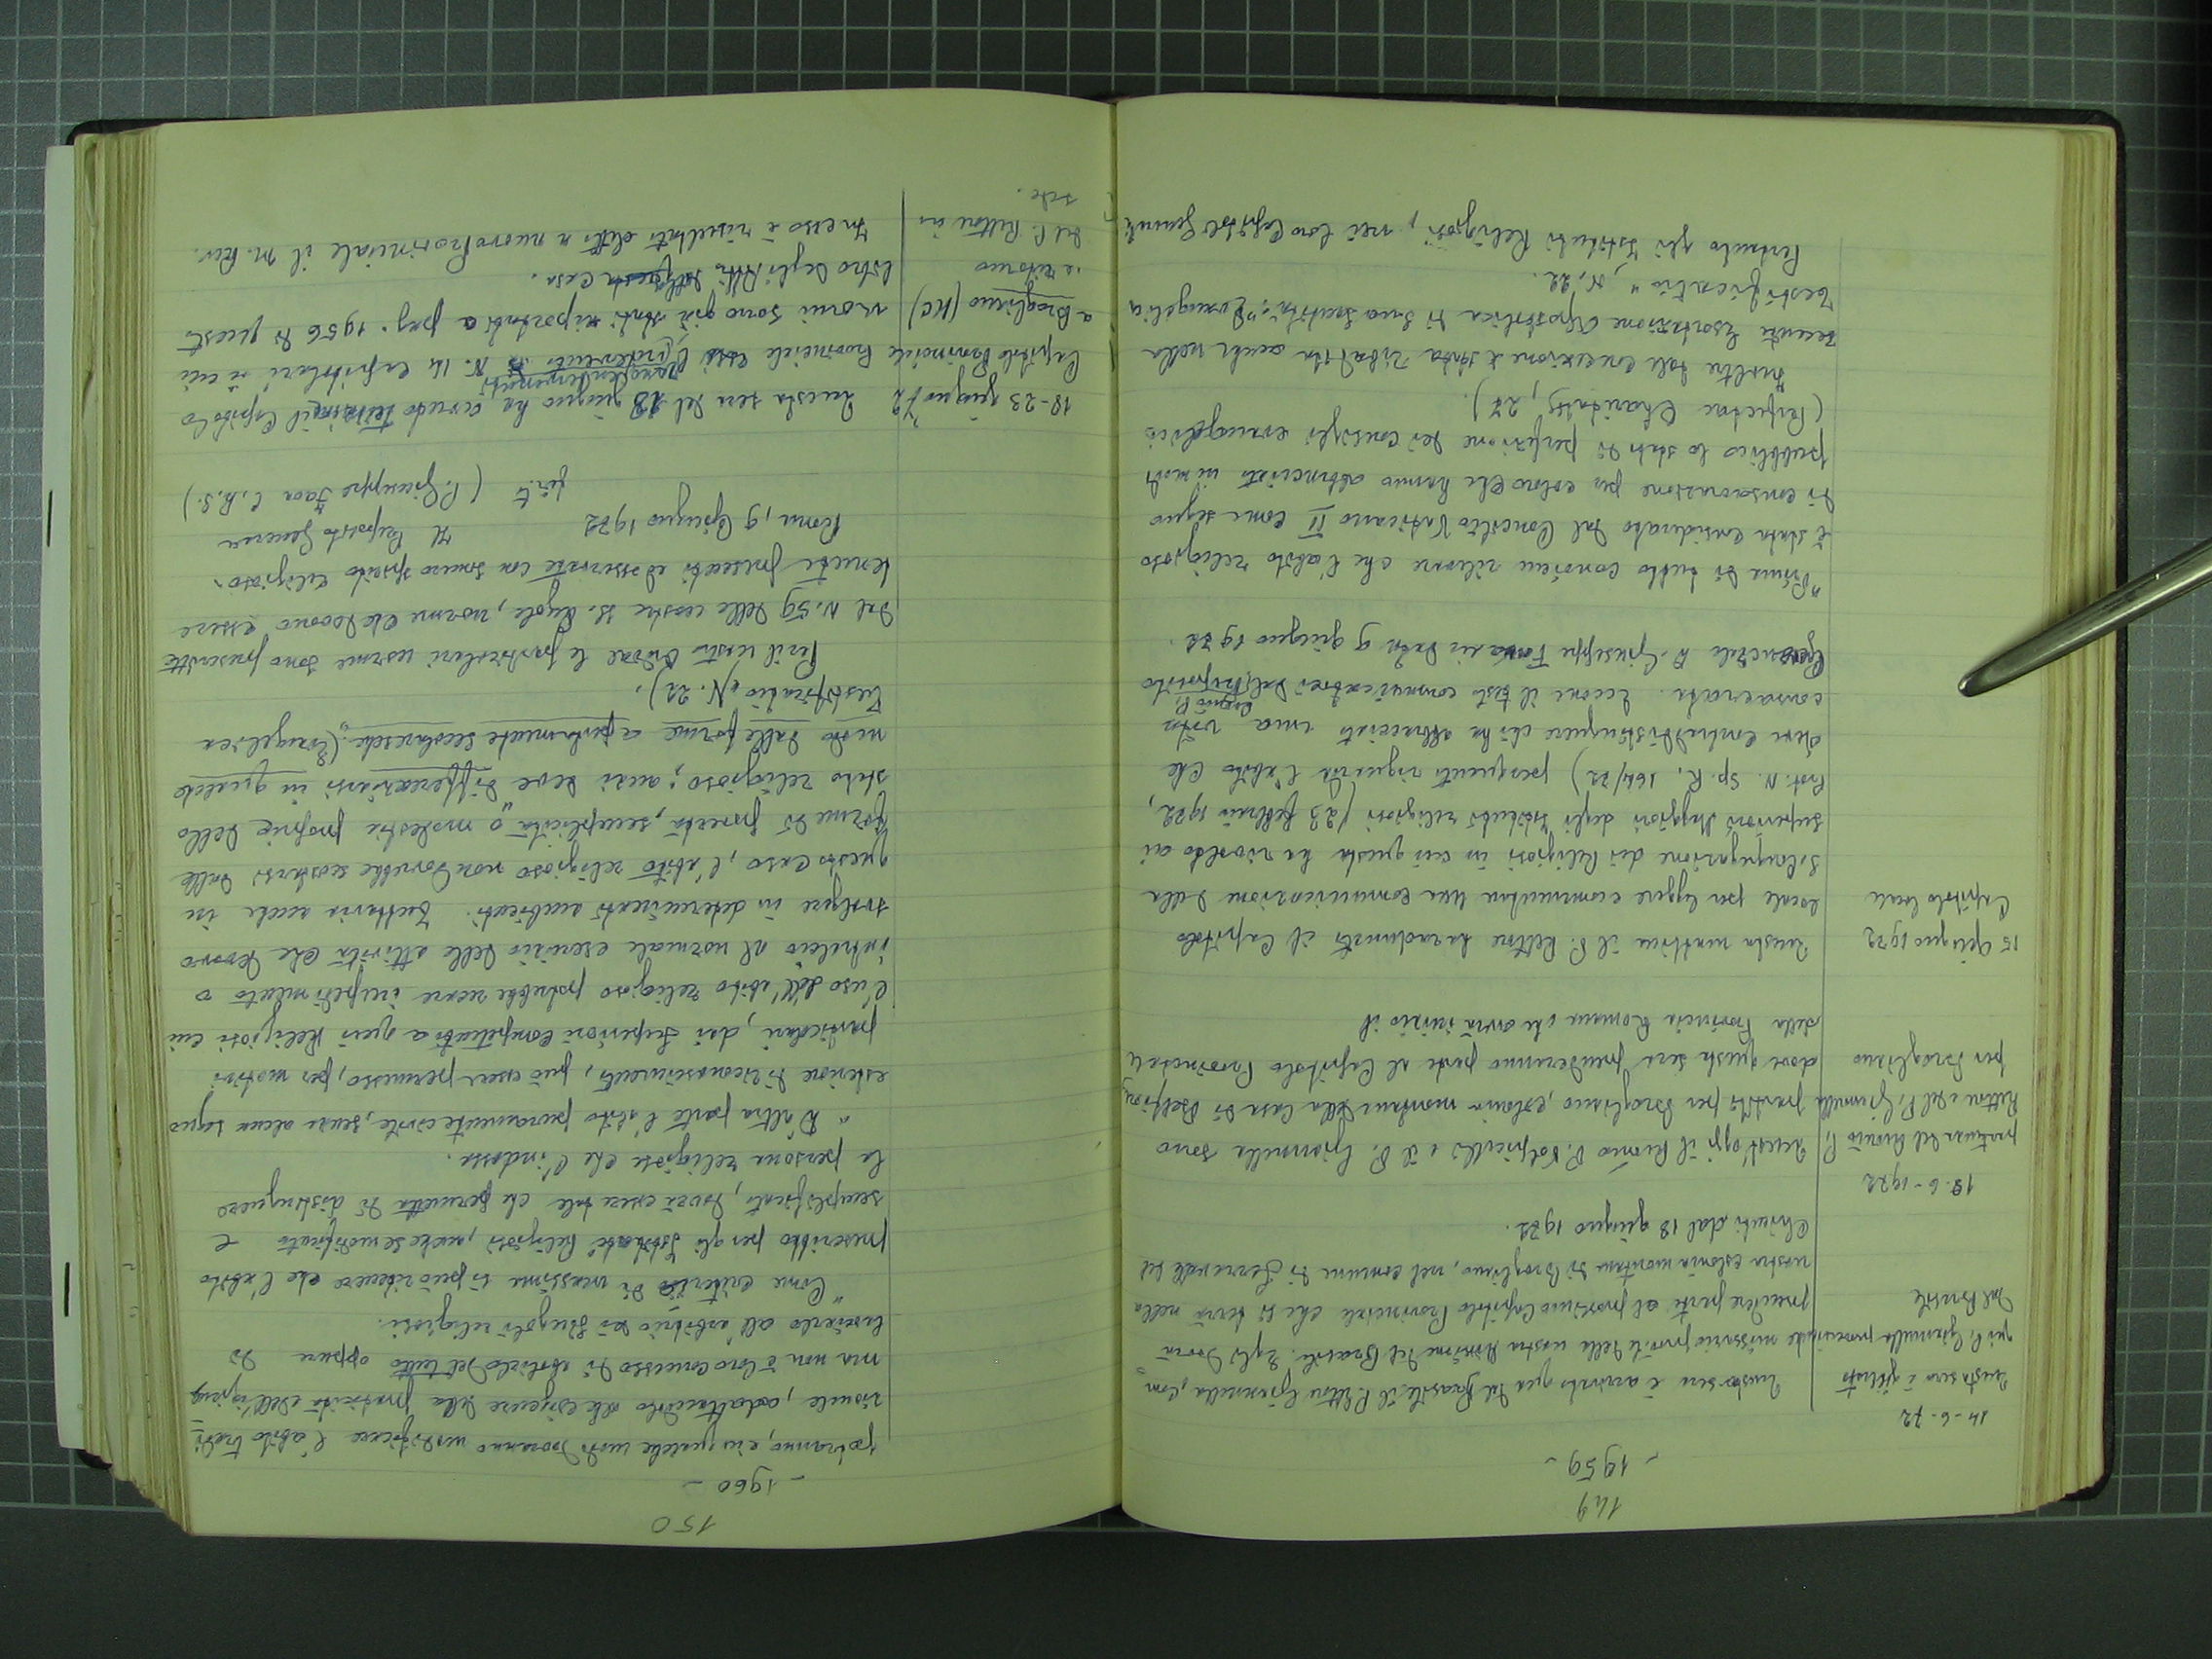 149
- 1959 -
14-6-72
Questa sera è giunto
qui P. Giannella provinciale
dal Brasile
Questa sera è arrivato qua dal Brasile il P. Ettore Giannella, Com-
missario prov.le della nostra Missione del Brasile. Egli dovrà
prendere parte al prossimo Capitolo Provinciale che si terrà nella
nostra colonia montana di Bragliano, nel comune di Serravalle del
Chienti, dal 18 giugno 1972.
18-6-1972
partenza del Provin. P.
Rettore e del P. Giannella
per Bragliano
Quest'oggi il P. e il P. Giannella sono
partiti per Bragliano, colonia montana della Casa di
dove questa sera prenderanno parte al Capitolo Provinciale
della Provincia Romana che avrà inizio il
15 Giugno 1972
Capitolo locale
Questa mattina il P. Rettore ha radunato il Capitolo
locale per leggere e commentare una comunicazione della
S. Congregazione dei Religiosi in cui questa ha rivolto ai
superiori Maggiori degli Istituti religiosi (23 febbraio 1972,
Prot. N. Sp. R. 164/72) per quanto riguarda l'abito che
deve contraddistinguere chi ha abbracciato una vita
consacrata. Eccone il testo comunicatoci dal Preposito
Generale P. Giuseppe Fava in data 9 giugno 1972.
"Prima di tutto conviene rilevare che l'abito religioso
è stato considerato dal Concilio Vaticano II come segno
di consacrazione per coloro che hanno abbracciato in modo
pubblico lo stato di perfezione dei consigli evangelici
(Perfectae Charitatis, 27).
Inoltre tale concezione è stata ribadita anche nella
recente Esortazione Apostolica di Sua Santità: "Evangelica
Testificatio" N. 22.
Pertanto gli Istituti Religiosi, nei loro Capitoli Generali
150
- 1960 -
potranno, e in qualche modo dovranno modificare l'abito tradi-
zionale, adattandolo alle esigenze della praticità e dell'igiene
ma non è loro concesso di abolirlo del tutto oppure di
lasciarlo all'arbitrio dei singoli religiosi.
"Come criterio di massima si può ritenere che l'abito
prescritto per gli Istituti Religiosi, anche se modificato e
semplificato, dovrà essere tale che permetta di distinguere
la persona religiosa che l'indossa.
"D'altra parte l'abito puramente civile, senza alcun segno
esteriore di riconoscimento, può essere permesso, per motivi
particolari, dai Superiori competenti a quei Religiosi cui
l'uso dell'abito religioso potrebbe recare impedimento o
intralcio al normale esercizio delle attività che devono
svolgere in determinati ambienti. Tuttavia anche in
questo caso, l'abito religioso non dovrebbe scostarsi dalle
forme di povertà, semplicità e modestia proprie dello
stato religioso; anzi deve "differenziarsi in qualche
modo dalle forme apertamente secolaresche" (Evangelica
Testificatio, N. 22).
Per il nostro Ordine le particolari norme sono prescritte
dal N. 59 delle nostre SS. Regole, norme che devono essere
tenute presenti ed osservate con sincero spirito religioso.
Roma, 9 Giugno 1972
Il Preposito Generale
f.to (P. Giuseppe Fava C.R.S.)
18-23 giugno 72
Capitolo Provinciale
a Bragliano (MC)
e ritorno
del P. Rettore in
sede.
Questa sera del 18 giugno ha avuto il Capitolo
Provinciale. N. 14 capitolari i cui
nomi sono già stati riportati a pag. 1956 di questo
Libro degli Atti della Casa.
In esso è risultato eletto a nuovo Provinciale il M. Rev.